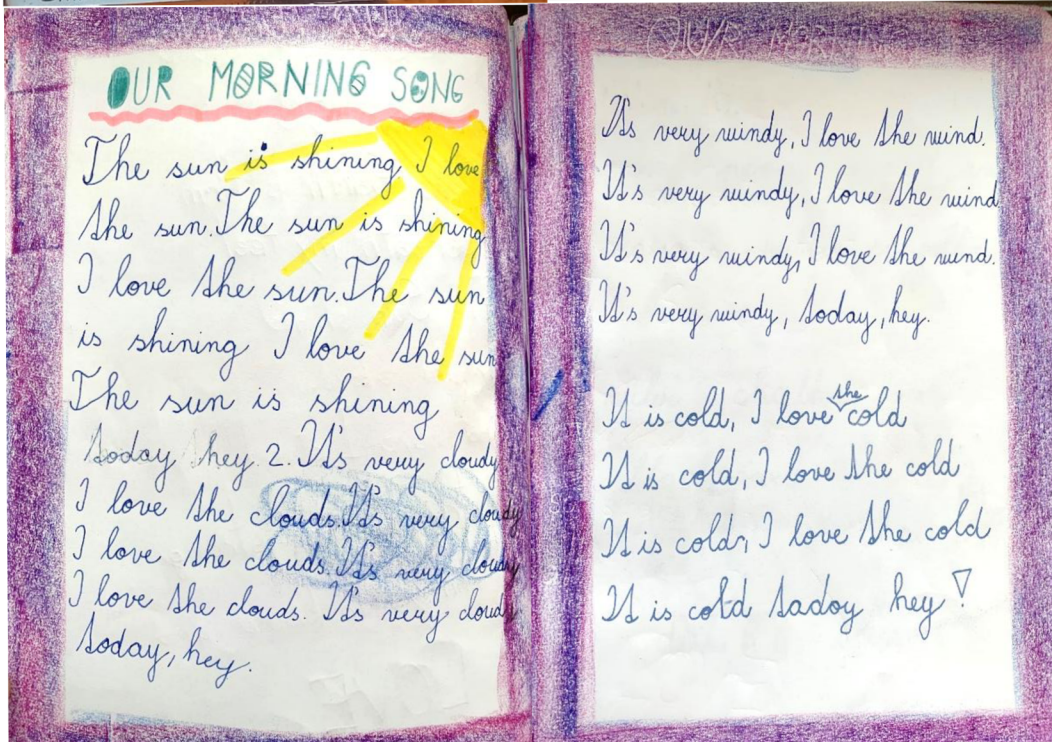 OUR MORNING SONG
The sun is shining I love
the sun. The sun is shining
I love the sun. The sun
is shining I love the sun
The sun is shining
today hey. 2. It's very cloudy
I love the clouds. It's very cloudy
I love the clouds. It's very cloudy
I love the clouds. It's very cloudy
today, hey.
OUR MORNI
It's very windy, I love the wind.
It's very windy, I love the wind
It's very windy, I love the wind.
It's very windy, today, hey.
It is cold, I love the cold
It is cold, I love the cold
It is cold, I love the cold
It is cold tadoy hey!